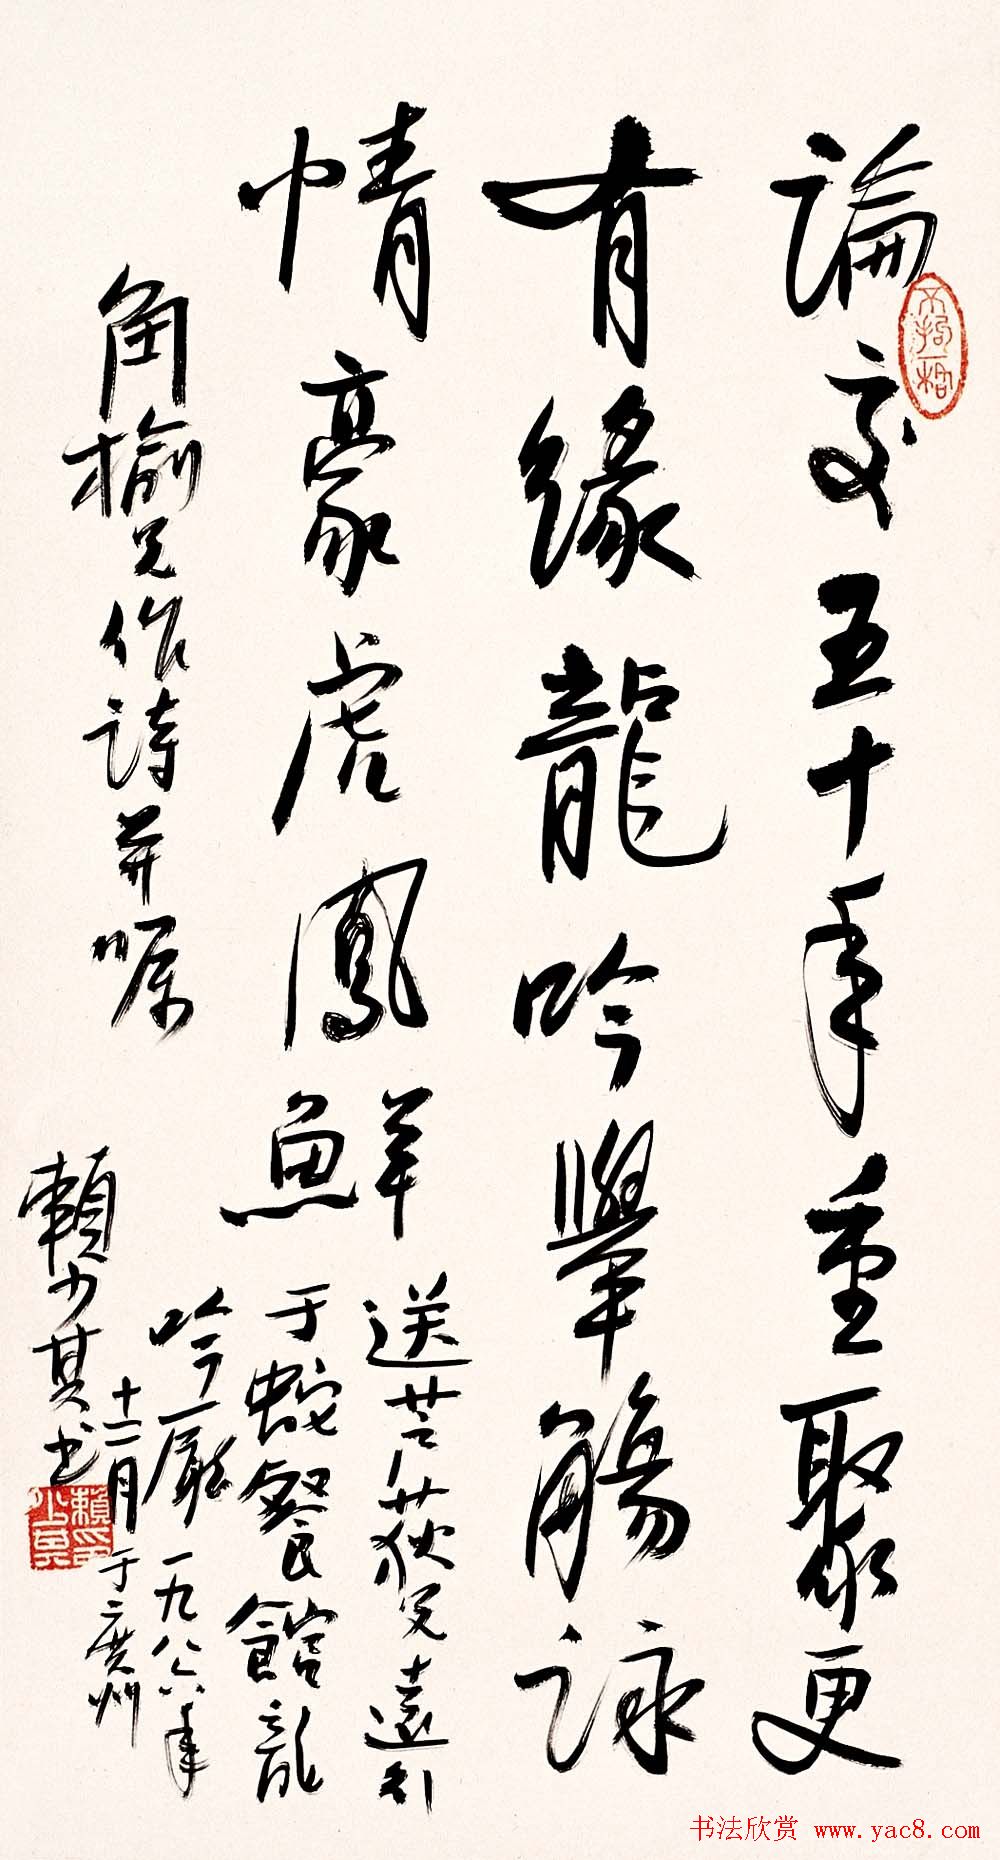 論交五十年重聚更
有緣龍吟舉觴詠
情豪虎鳳鮮
送芒荻兄遠引
于蛇餐館龍
吟廳一九八六年
十二月于廣州
角榆兄作詩并嘱
賴少其书
不拘一格
賴少其印
书法欣赏 www.yac8.com